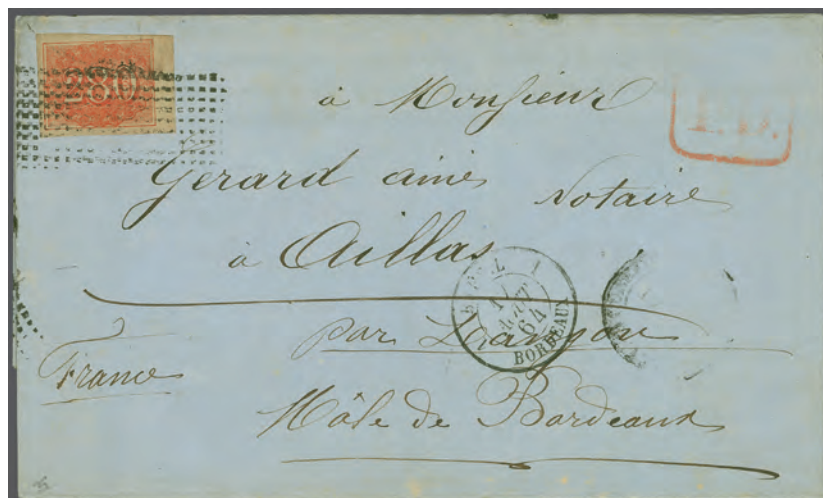 280
à Monsieur
P.D.
Gerard ainé Notaire
à Aillas
BRÉSIL 1
AOUT
64
BORDEAUX
par Langon
France
Môle de Bordeaux